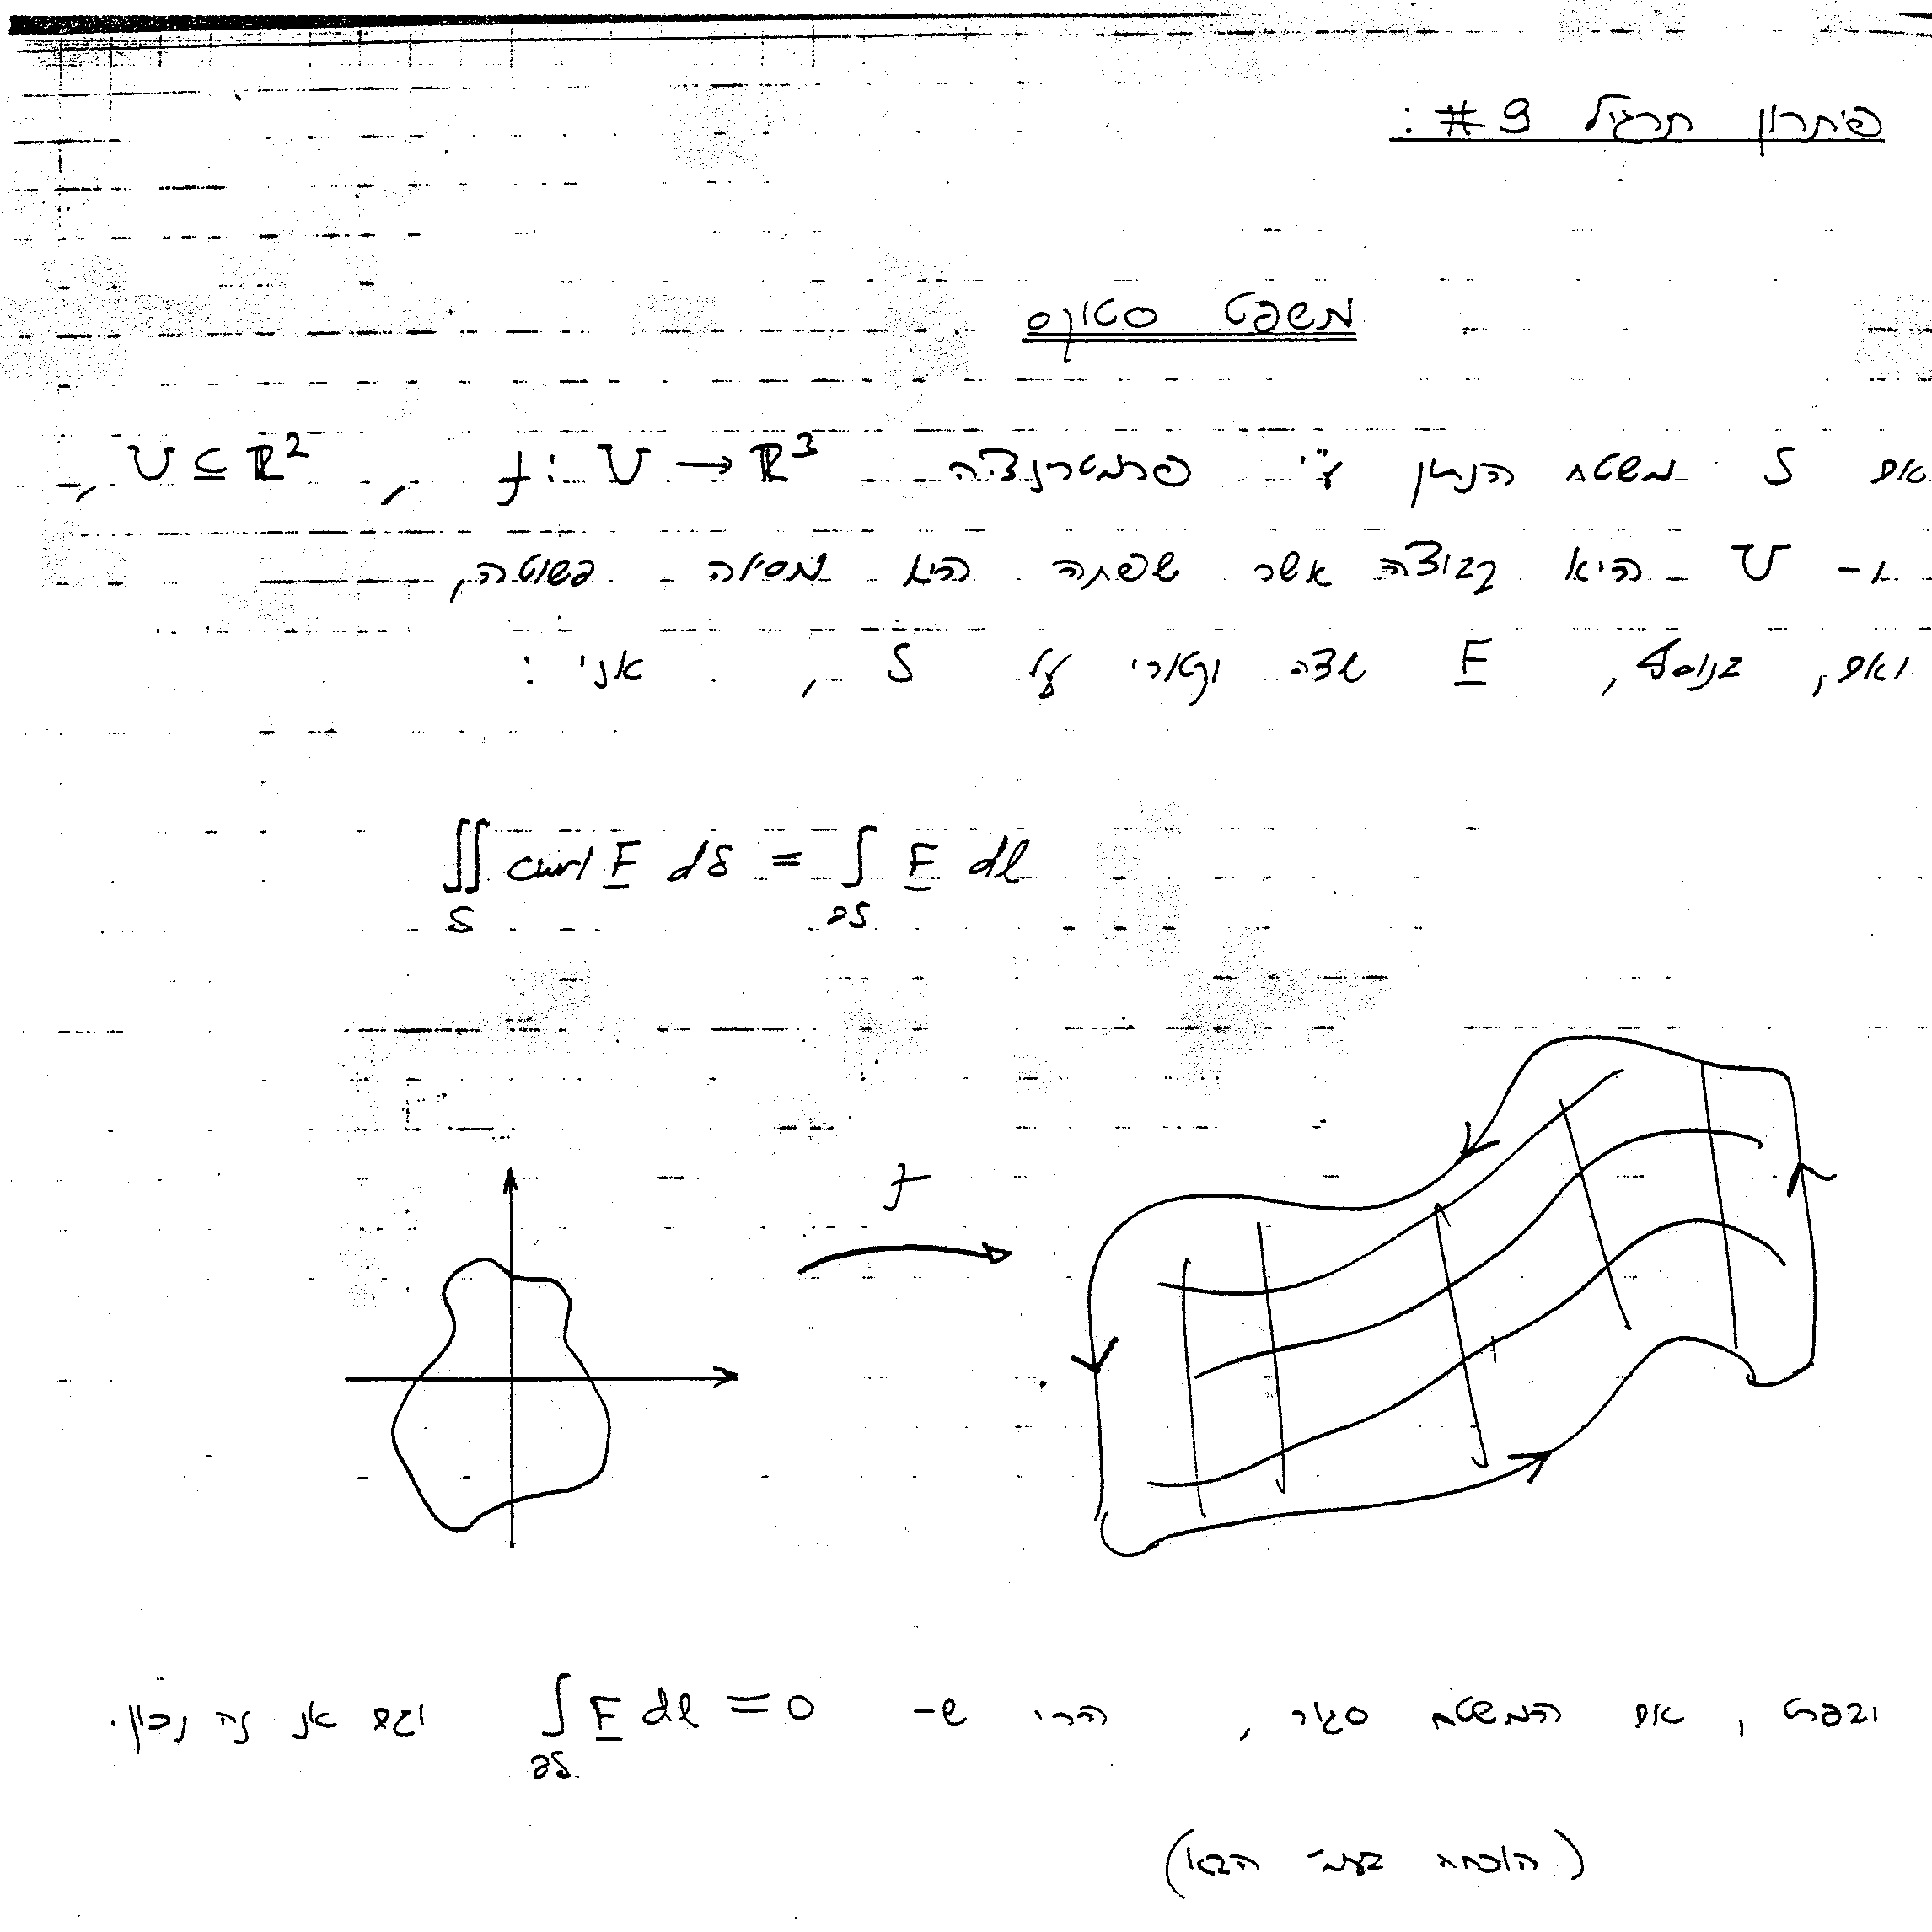 פיתרון תרגיל 9# :
משפט סטוקס
אם S משטח הנתון ע"י פרמטריזציה f: U → ℝ³ , U ⊆ ℝ² ,
ו- U היא קבוצה אשר שפתה היא מסילה פשוטה,
ואם, בנוסף, F שדה וקטורי על S , אזי :
∬ curl F ds = ∫ F dl
S ∂S
f
ובפרט , אם המשטח סגור , הרי ש- ∫ F dl = 0 וגם אז זה נכון.
∂S
(הוכחה בעמ' הבא)